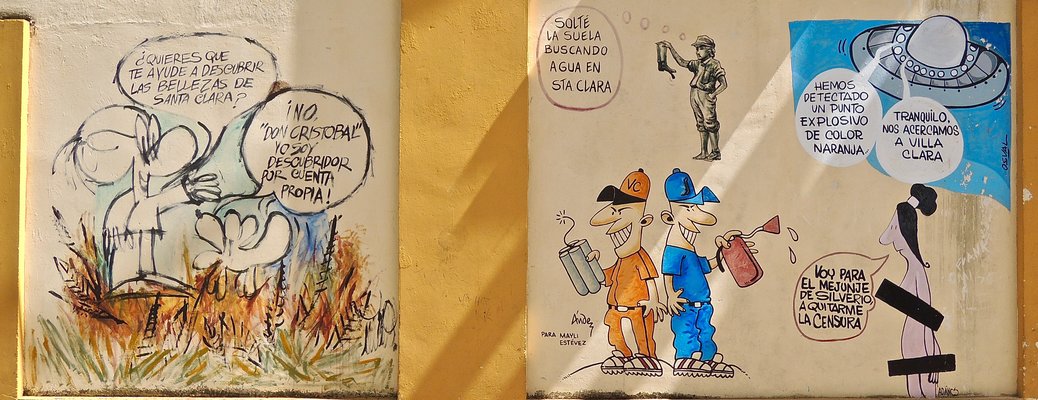 ¿QUIERES QUE
TE AYUDE A DESCUBRIR
LAS BELLEZAS DE
SANTA CLARA?
¡NO,
"DON CRISTOBAL"
YO SOY
DESCUBRIDOR
POR CUENTA
PROPIA!
SOLTÉ
LA SUELA
BUSCANDO
AGUA EN
STA CLARA
HEMOS
DETECTADO
UN PUNTO
EXPLOSIVO
DE COLOR
NARANJA.
TRANQUILO.
NOS ACERCAMOS
A VILLA
CLARA
OSVAL
VC
J
PARA MAYLI
ESTÉVEZ
VOY PARA
EL MEJUNJE
DE SILVERIO,
A QUITARME
LA CENSURA